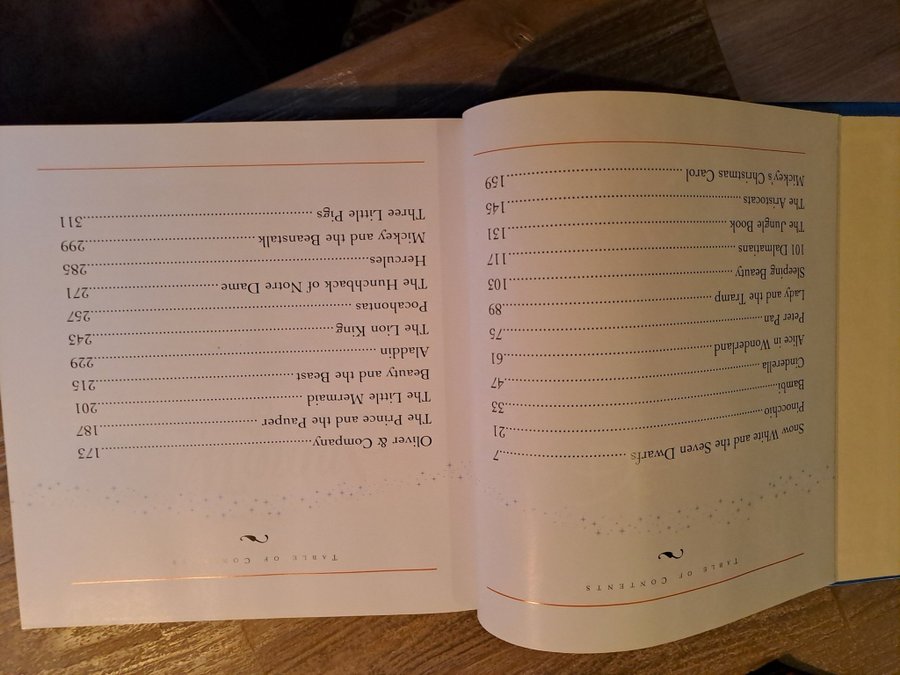 TABLE OF CONTENTS
Snow White and the Seven Dwarfs ..................7
Pinocchio ..................21
Bambi ..................33
Cinderella ..................47
Alice in Wonderland ..................61
Peter Pan ..................75
Lady and the Tramp ..................89
Sleeping Beauty ..................103
101 Dalmatians ..................117
The Jungle Book ..................131
The Aristocats ..................145
Mickey's Christmas Carol ..................159
TABLE OF CONTENTS
Oliver & Company ..................173
The Prince and the Pauper ..................187
The Little Mermaid ..................201
Beauty and the Beast ..................215
Aladdin ..................229
The Lion King ..................243
Pocahontas ..................257
The Hunchback of Notre Dame ..................271
Hercules ..................285
Mickey and the Beanstalk ..................299
Three Little Pigs ..................311